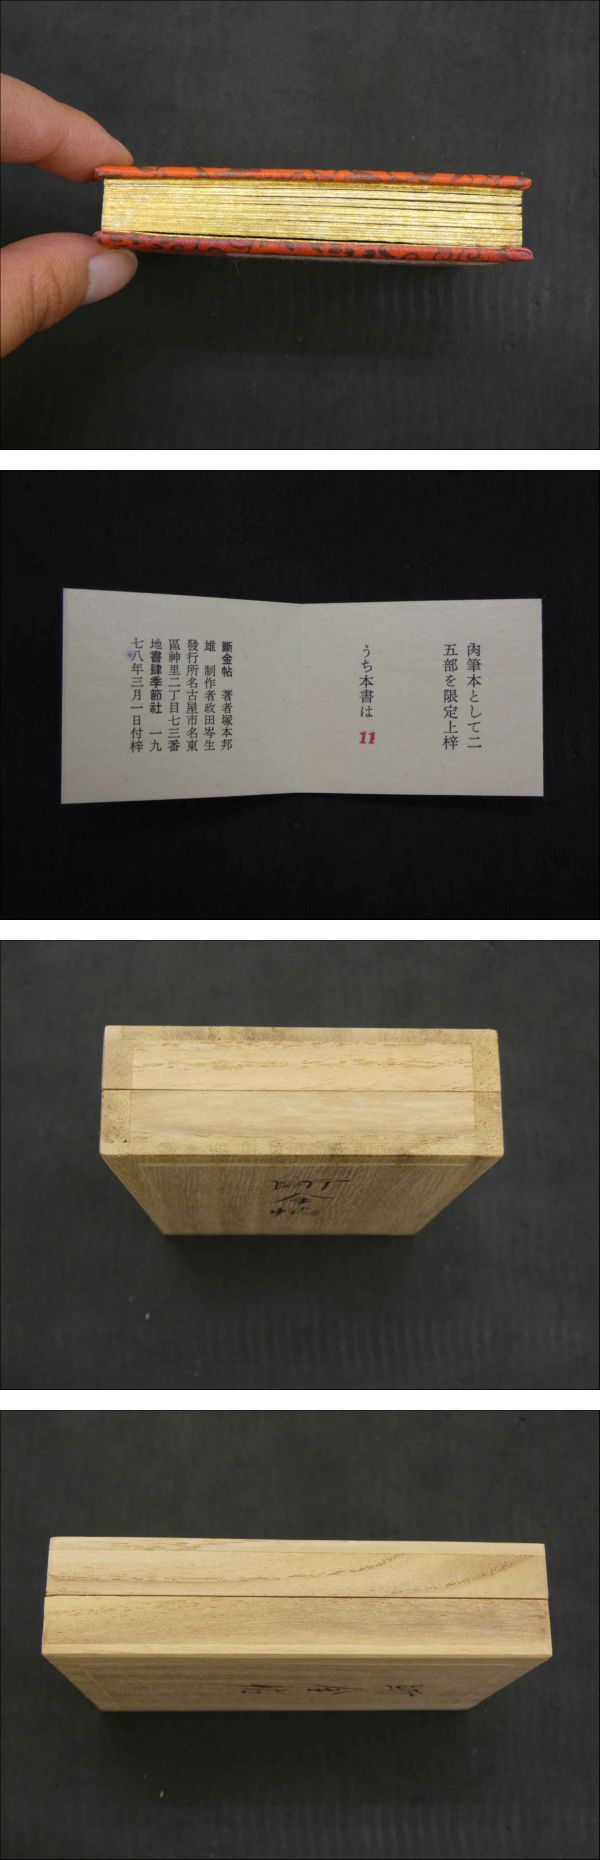 肉筆本として二
五部を限定上梓
うち本書は 11
斷金帖 著者塚本邦
雄 制作者政田岑生
發行所名古屋市名東
區神里二丁目七三番
地書肆季節社 一九
七八年三月一日付梓
斷金帖